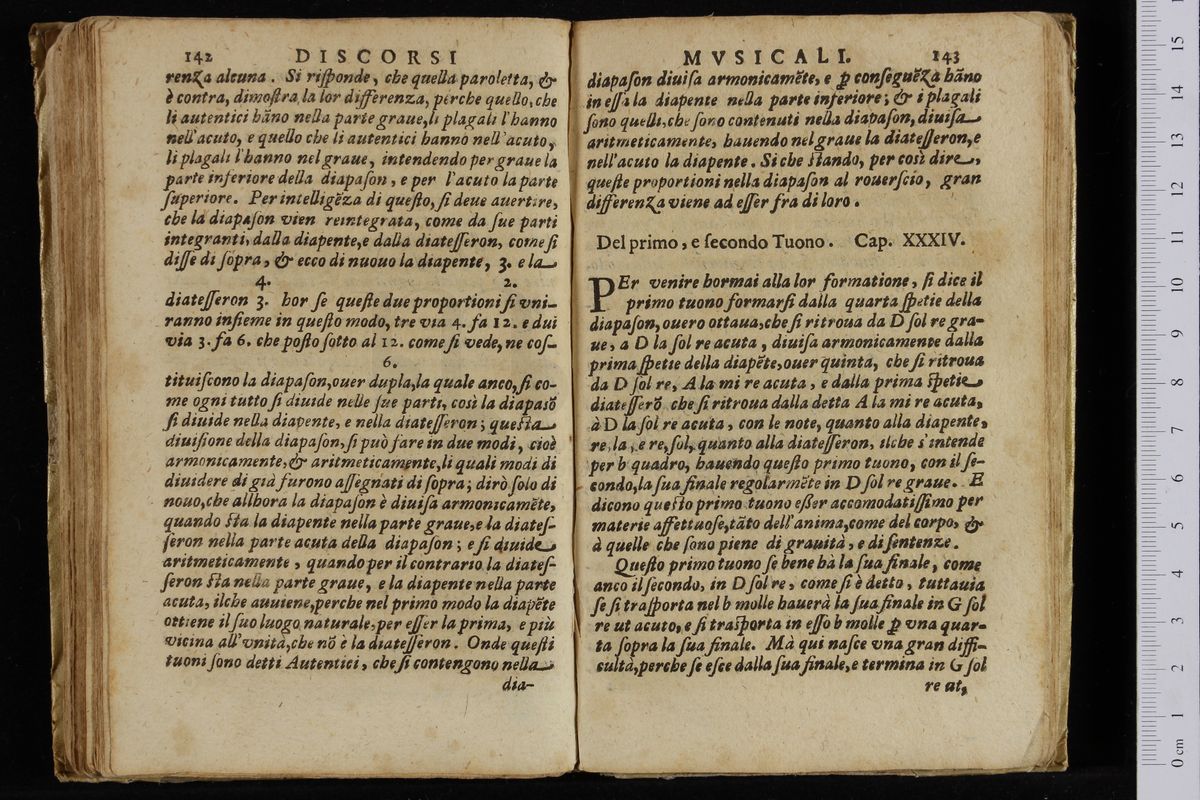 142 DISCORSI
renza alcuna. Si riſponde, che quella paroletta, &
è contra, dimoſtra la lor differenza, perche quello, che
li autentici hãno nella parte graue, li plagali l'hanno
nell'acuto, e quello che li autentici hanno nell'acuto,
li plagali l'hanno nel graue, intendendo per graue la
parte inferiore della diapaſon, e per l'acuto la parte
ſuperiore. Per intelligẽza di queſto, ſi deue auertire,
che la diapaſon vien reintegrata, come da ſue parti
integranti, dalla diapente, e dalla diateſſeron, come ſi
diſſe di ſopra, & ecco di nuouo la diapente, 3. e la
4. 2.
diateſſeron 3. hor ſe queſte due proportioni ſi vni-
ranno inſieme in queſto modo, tre via 4. fa 12. e dui
via 3. fa 6. che poſto ſotto al 12. come ſi vede, ne coſ-
6.
tituiſcono la diapaſon, ouer dupla, la quale anco, ſi co-
me ogni tutto ſi diuide nelle ſue parti, così la diapasõ
ſi diuide nella diapente, e nella diateſſeron; queſta
diuiſione della diapaſon, ſi può fare in due modi, cioè
armonicamente, & aritmeticamente, li quali modi di
diuidere di già furono aſſegnati di ſopra; dirò ſolo di
nouo, che allhora la diapaſon è diuiſa armonicamẽte,
quando ſta la diapente nella parte graue, e la diateſ-
ſeron nella parte acuta della diapaſon; e ſi diuide
aritmeticamente, quando per il contrario la diateſ-
ſeron ſta nella parte graue, e la diapente nella parte
acuta, ilche auuiene, perche nel primo modo la diapẽte
ottiene il ſuo luogo naturale, per eſſer la prima, e più
vicina all'vnità, che nõ è la diateſſeron. Onde queſti
tuoni ſono detti Autentici, che ſi contengono nella
dia-
MVSICALI. 143
diapaſon diuiſa armonicamẽte, e ꝑ conſeguẽza hãno
in eſſa la diapente nella parte inferiore; & i plagali
ſono quelli, che ſono contenuti nella diapaſon, diuiſa
aritmeticamente, hauendo nel graue la diateſſeron, e
nell'acuto la diapente. Si che ſtando, per così dire,
queſte proportioni nella diapaſon al rouerſcio, gran
differenza viene ad eſſer fra di loro.
Del primo, e ſecondo Tuono. Cap. XXXIV.
PEr venire hormai alla lor formatione, ſi dice il
primo tuono formarſi dalla quarta ſpetie della
diapaſon, ouero ottaua, che ſi ritroua da D ſol re gra-
ue, a D la ſol re acuta, diuiſa armonicamente dalla
prima ſpetie della diapẽte, ouer quinta, che ſi ritroua
da D ſol re, A la mi re acuta, e dalla prima ſpetie
diateſſerõ che ſi ritroua dalla detta A la mi re acuta,
à D la ſol re acuta, con le note, quanto alla diapente,
re, la, e re, ſol, quanto alla diateſſeron, ilche s'intende
per b quadro, hauendo queſto primo tuono, con il ſe-
condo, la ſua finale regolarmẽte in D ſol re graue. E
dicono queſto primo tuono eßer accomodatiſſimo per
materie affettuoſe, tãto dell'anima, come del corpo, &
à quelle che ſono piene di grauità, e di ſentenze.
Queſto primo tuono ſe bene hà la ſua finale, come
anco il ſecondo, in D ſol re, come ſi è detto, tuttauia
ſe ſi traſporta nel b molle hauerà la ſua finale in G ſol
re ut acuto, e ſi traſporta in eſſo b molle ꝑ vna quar-
ta ſopra la ſua finale. Mà qui naſce vna gran diffi-
cultà, perche ſe eſce dalla ſua finale, e termina in G ſol
re ut,
15
14
13
12
11
10
9
8
7
6
5
4
3
2
1
0 cm